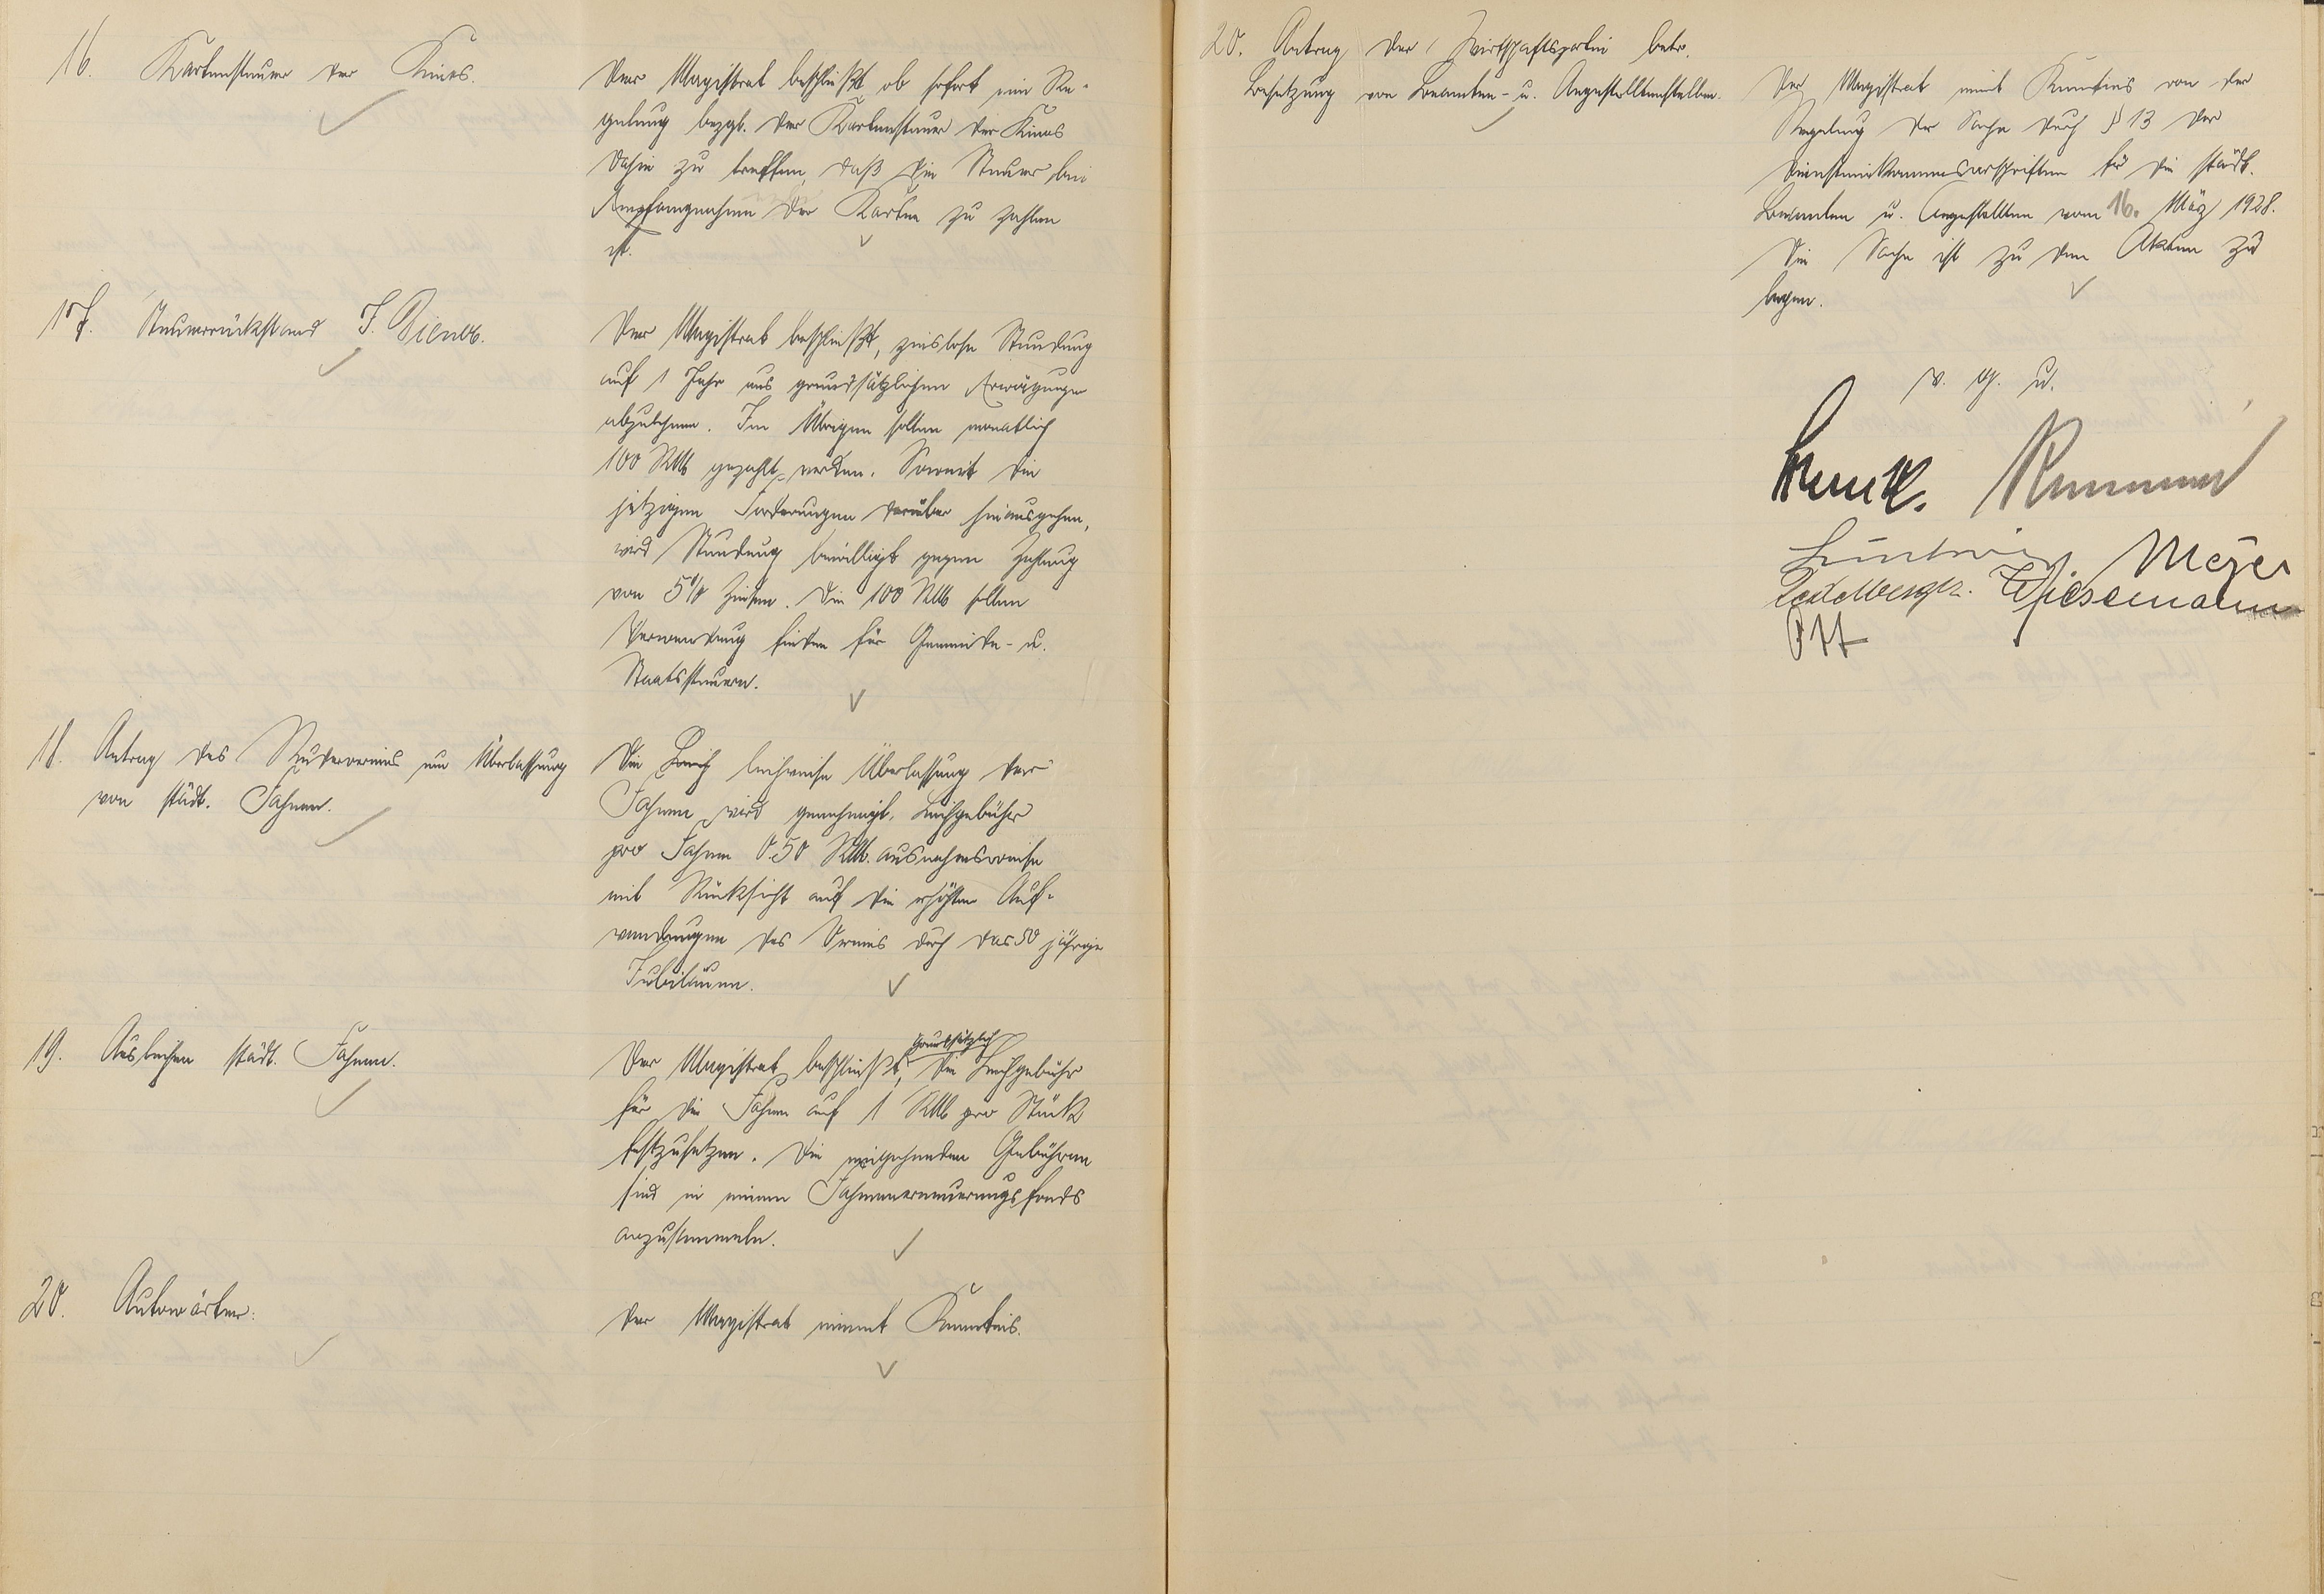 16. Kartensteuer der Kinos.
Der Magistrat beschließt ab sofort eine Re-
gelung bezgl. der Kartensteuer der Kinos
dahin zu treffen, daß die Steuer bei
Empfangnahme der Karten zu zahlen
ist.
17. Steuerrückstand J. Dienes.
Der Magistrat beschließt, zinslose Stundung
auf 1 Jahr aus grundsätzlichen Erwägungen
abzulehnen. Im Übrigen sollen monatlich
100 RM gezahlt werden. Soweit die
jetzigen Forderungen darüber hinausgehen,
wird Stundung bewilligt gegen Zahlung
von 5% Zinsen. Die 100 RM sollen
Verwendung finden für Gemeinde- u.
Staatssteuern.
18. Antrag des Rudervereins um Überlassung
von städt. Fahnen.
Die leihweise Überlassung der
Fahnen wird genehmigt. Leihgebühr
pro Fahne 0.50 RM. ausnahmsweise
mit Rücksicht auf die erhöhten Auf-
wendungen des Vereins durch das 50 jährige
Jubiläum.
19. Ausleihen städt. Fahnen.
Der Magistrat beschließt, grundsätzlich die Leihgebühr
für die Fahnen auf 1 RM pro Stück
festzusetzen. Die eingehenden Gebühren
sind in einem Fahnenerneuerungsfonds
anzusammeln.
20. Autowärter.
Der Magistrat nimmt Kenntnis.
20. Antrag der Wirtschaftspartei betr.
Besetzung von Beamten- u. Angestelltenstellen.
Der Magistrat nimmt Kenntnis von der
Regelung der Sache durch § 13 der
Diensteinkommensvorschriften für die städt.
Beamten u. Angestellten vom 16. März 1928.
Die Sache ist zu den Akten zu
legen.
v. g. u.
Ludwig Meyer
Wiesemann
Ott